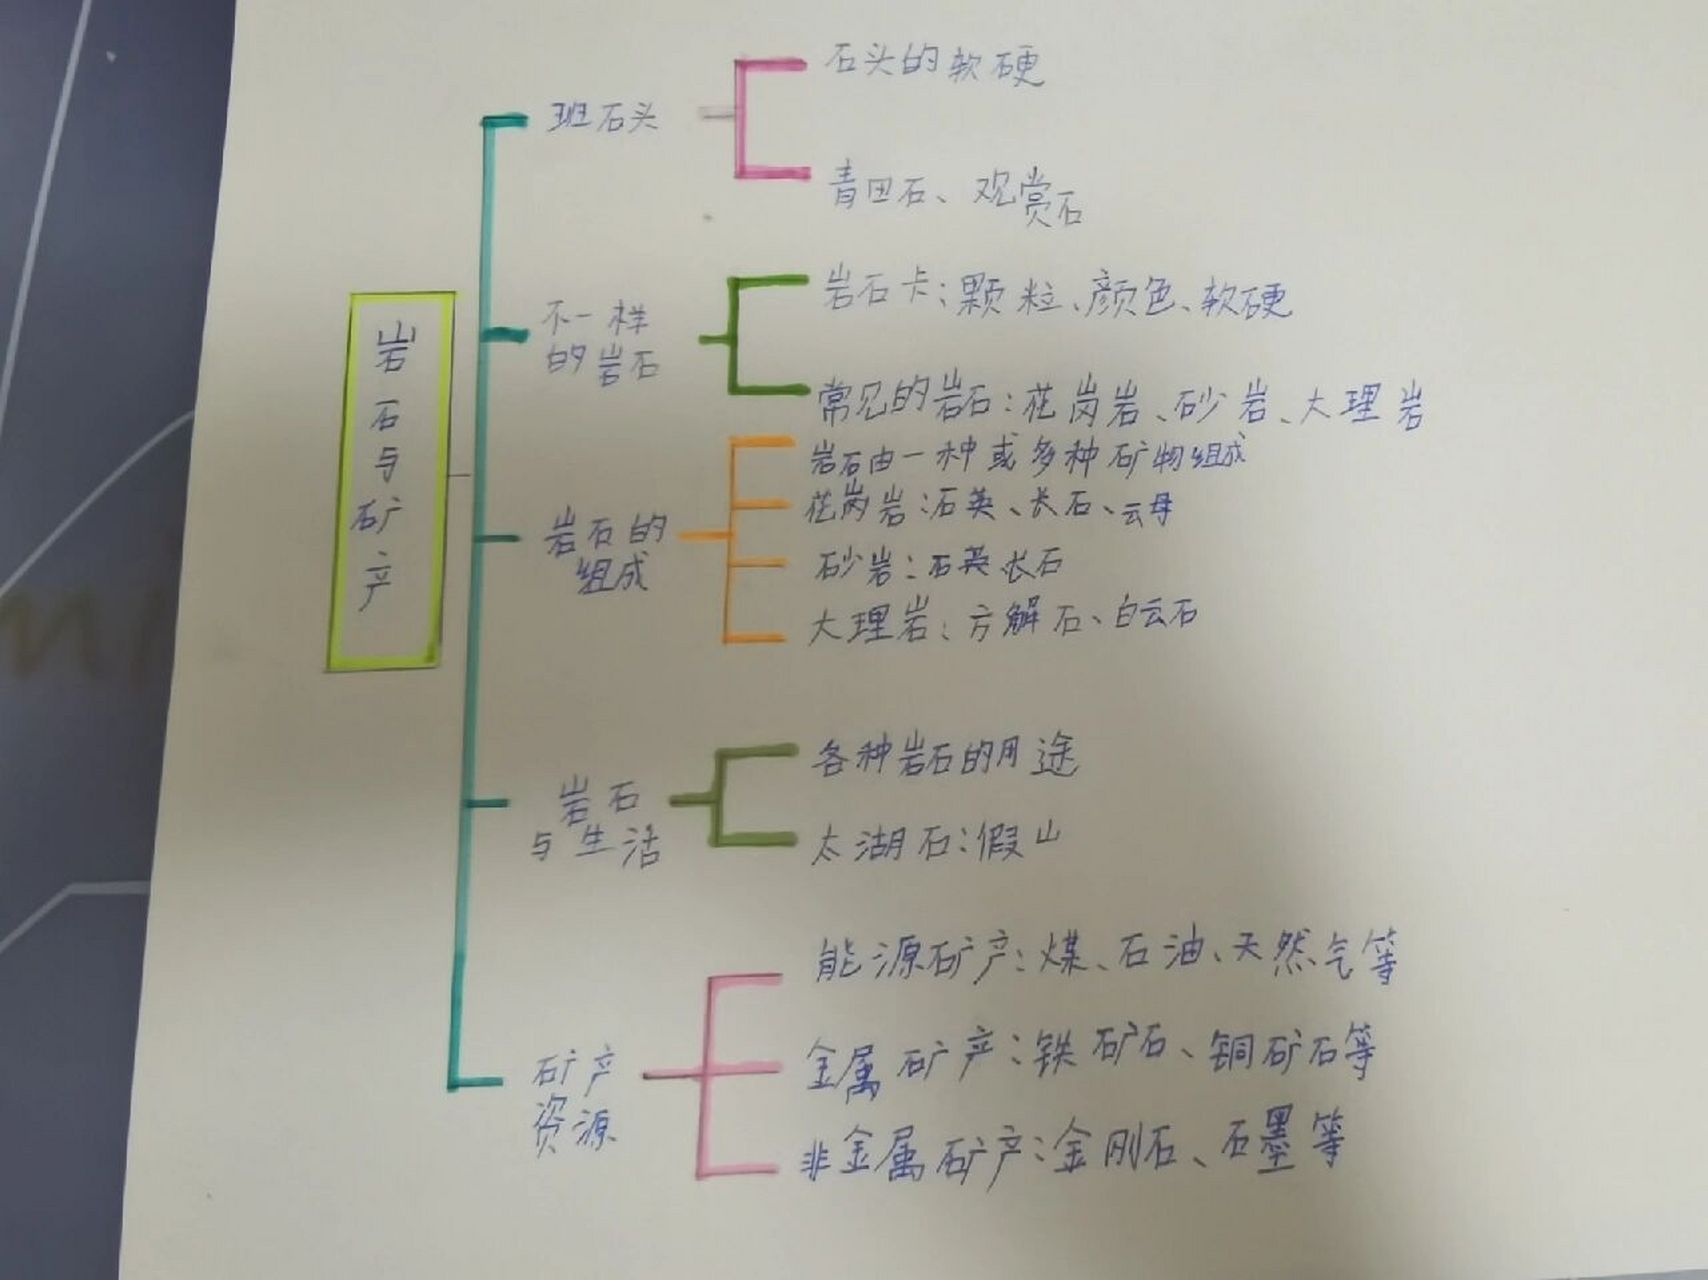 岩石与矿产
班石头
石头的软硬
青田石、观赏石
不一样
的岩石
岩石卡:颗粒、颜色、软硬
常见的岩石:花岗岩、砂岩、大理岩
岩石的
组成
岩石由一种或多种矿物组成
花岗岩:石英、长石、云母
砂岩:石英、长石
大理岩:方解石、白云石
岩石
与生活
各种岩石的用途
太湖石:假山
矿产
资源
能源矿产:煤、石油、天然气等
金属矿产:铁矿石、铜矿石等
非金属矿产:金刚石、石墨等